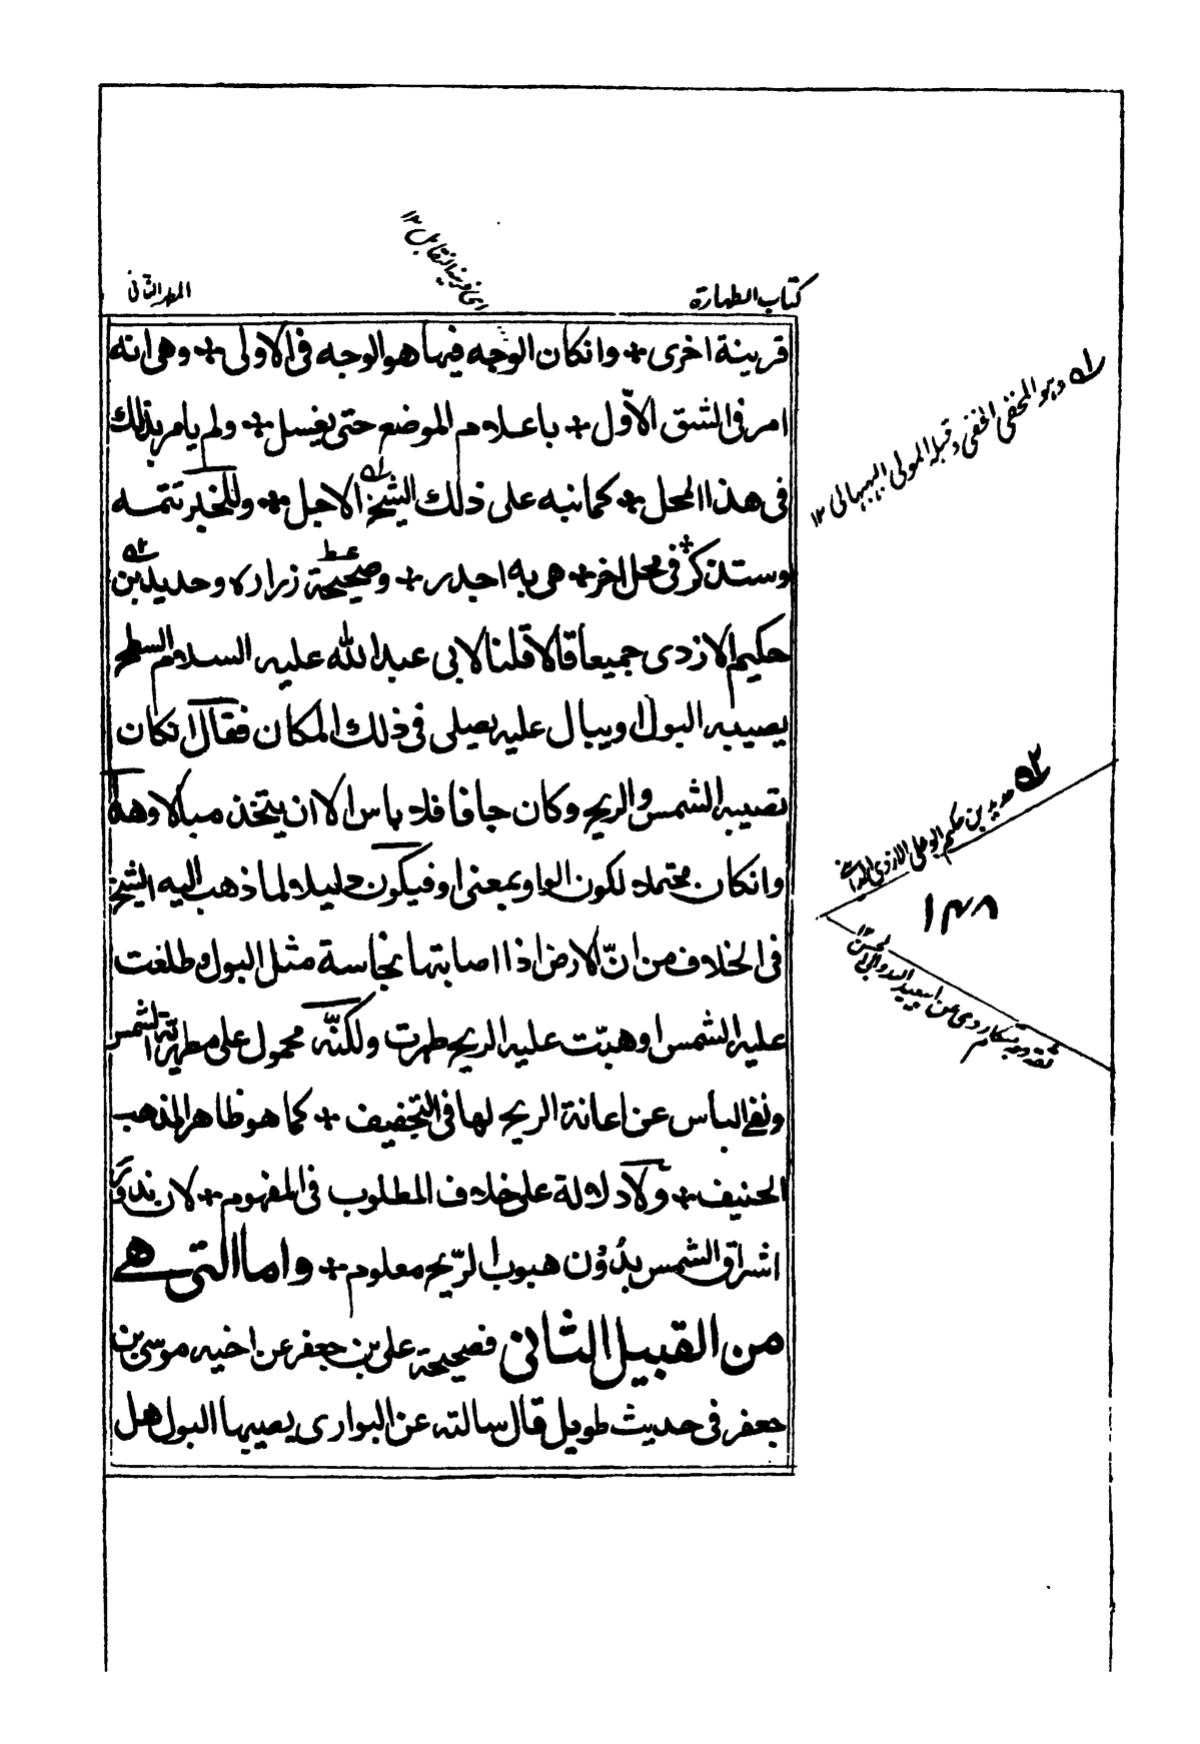 كتاب الطهارة
المطهر الثاني
اى قرينة التقابل ١٢
قرينة اخرى + وانكان الوجه فيها هو الوجه فى الاولى + وهى انه
امر فى الشق الاوّل + باعلام الموضع حتى يغسل + ولم يامر بذلك
فى هذا المحل + كما نبه على ذلك الشيخ الاجل + وللخبر تتمه
وستذكر فى محل اخر + هى به اجدر + وصحيحة زراره وحديد بن
حكيم الازدى جميعا قالا قلنا لابى عبد الله عليه السلام السطح
يصيبه البول او يبال عليه يصلى فى ذلك المكان فقال انكان
تصيبه الشمس والريح وكان جافا فلا باس الا ان يتخذ مبالا وهذا
وانكان محتملا لكون الواو بمعنى او فيكون دليلا لما ذهب اليه الشيخ
فى الخلاف من انّ الارض اذا اصابتها نجاسة مثل البول وطلعت
عليه الشمس او هبّت عليه الريح طهرت ولكنّه محمول على مطهرية الشمس
ونفى الباس عن اعانة الريح لها فى التجفيف + كما هو ظاهر المذهب
الحنيف + ولا دلالة على خلاف المطلوب فى المفهوم + لان ندور
اشراق الشمس بدُوْن هبوب الرّيح معلوم + واما التى هے
من القبيل الثانى فصحيحة على بن جعفر عن اخيه موسى بن
جعفر فى حديث طويل قال سالته عن البوارى يصيبها البول هل
وهو المحقق الخفى وقبله المولى البهبهانى ١٢
حديد بن حكيم ابو على الازدى المدائنى
١٣٨
ثقة وجه متكلم روى عن ابيعبد الله وابى الحسن ١٢